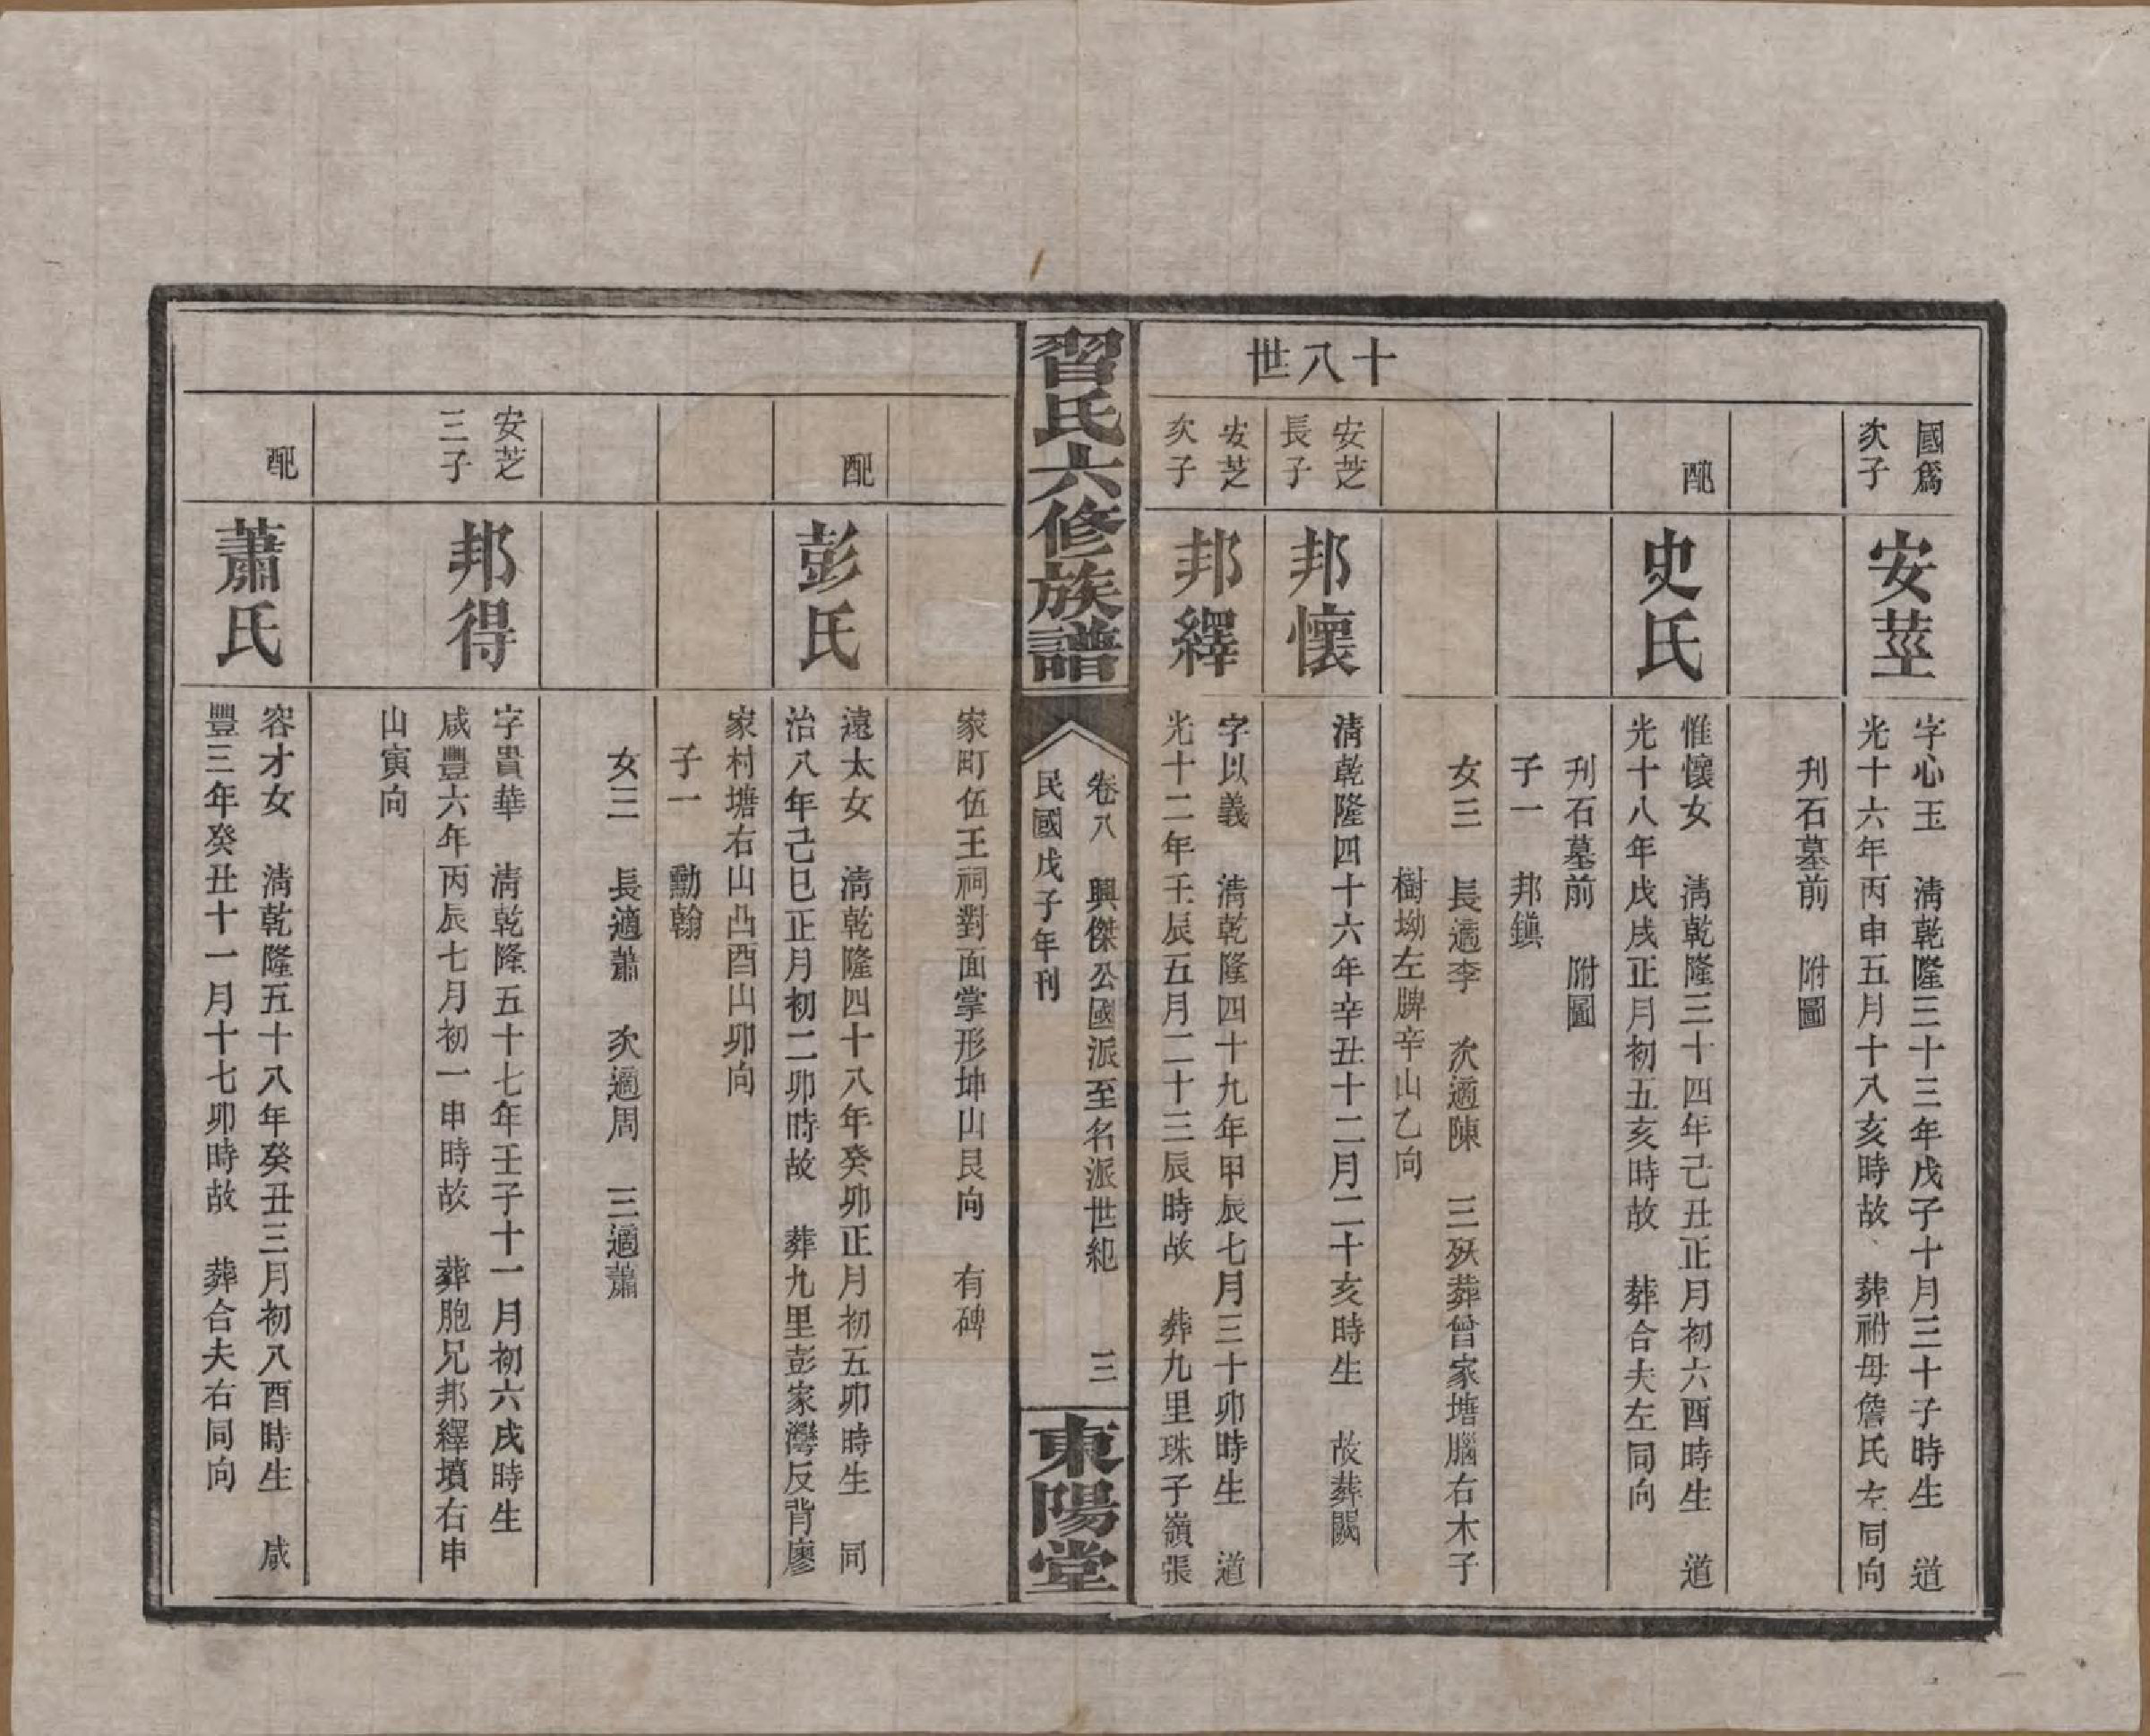 十八世
國爲
次子
安莖
字心玉　清乾隆三十三年戊子十月三十子時生　道
光十六年丙申五月十八亥時故　葬祔母詹氏左同向
刋石墓前　附圖
配
史氏
惟懷女　清乾隆三十四年己丑正月初六酉時生　道
光十八年戊戌正月初五亥時故　葬合夫左同向
刋石墓前　附圖
子一　邦鎮
女三　長適李　次適陳　三殀葬曾家塘腦右木子
樹坳左脾辛山乙向
安芝
長子
邦懷
清乾隆四十六年辛丑十二月二十亥時生　故葬闕
安芝
次子
邦繹
字以義　清乾隆四十九年甲辰七月三十卯時生　道
光十二年壬辰五月二十三辰時故　葬九里珠子嶺張
習氏六修族譜
卷八　興傑公國派至名派世紀　三
民國戊子年刊
東陽堂
家町伍王祠對面掌形坤山艮向　有碑
配
彭氏
遠太女　清乾隆四十八年癸卯正月初五卯時生　同
治八年己巳正月初二卯時故　葬九里彭家灣反背廖
家村塘右山凸酉山卯向
子一　勳翰
女三　長適蕭　次適周　三適蕭
安芝
三子
邦得
字貴華　清乾隆五十七年壬子十一月初六戌時生
咸豐六年丙辰七月初一申時故　葬胞兄邦繹墳右申
山寅向
配
蕭氏
容才女　清乾隆五十八年癸丑三月初八酉時生　咸
豐三年癸丑十一月十七卯時故　葬合夫右同向